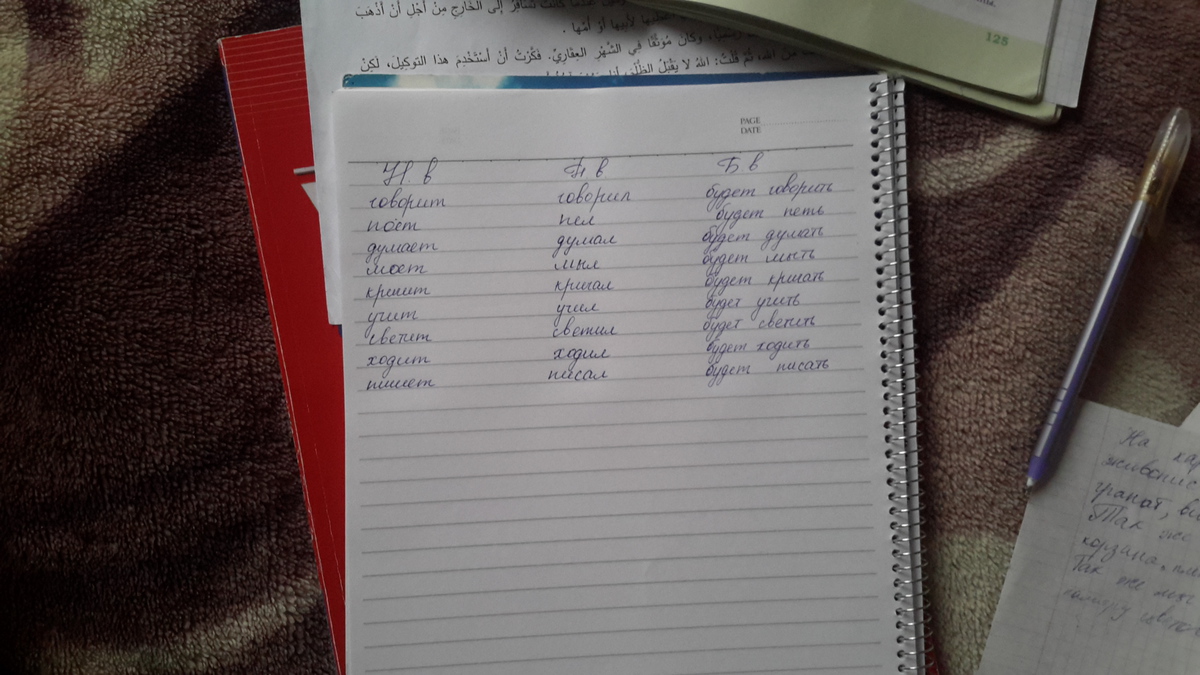 السَّفَرُ إلى الْخَارِجِ مِنْ أَجْلِ أَنْ أَذْهَبَ
لأبيها أوْ أمِّها .
وَكَانَ مُوَثَّقًا فِي الشَّهْرِ العِقَارِيِّ. فَكَّرْتُ أَنْ أَسْتَخْدِمَ هذا التوكيلَ، لَكِنْ
اللهَ، ثُمَّ قُلْتُ: اللهُ لا يَقْبَلُ الظُّلْمَ
125
PAGE
DATE
Н. в П в Б в
говорит говорил будет говорить
поёт пел будет петь
думает думал будет думать
моет мыл будет мыть
кричит кричал будет кричать
учит учил будет учить
светит светил будет светить
ходит ходил будет ходить
пишет писал будет писать
На
гранат,
Так же
корзина,
Так же